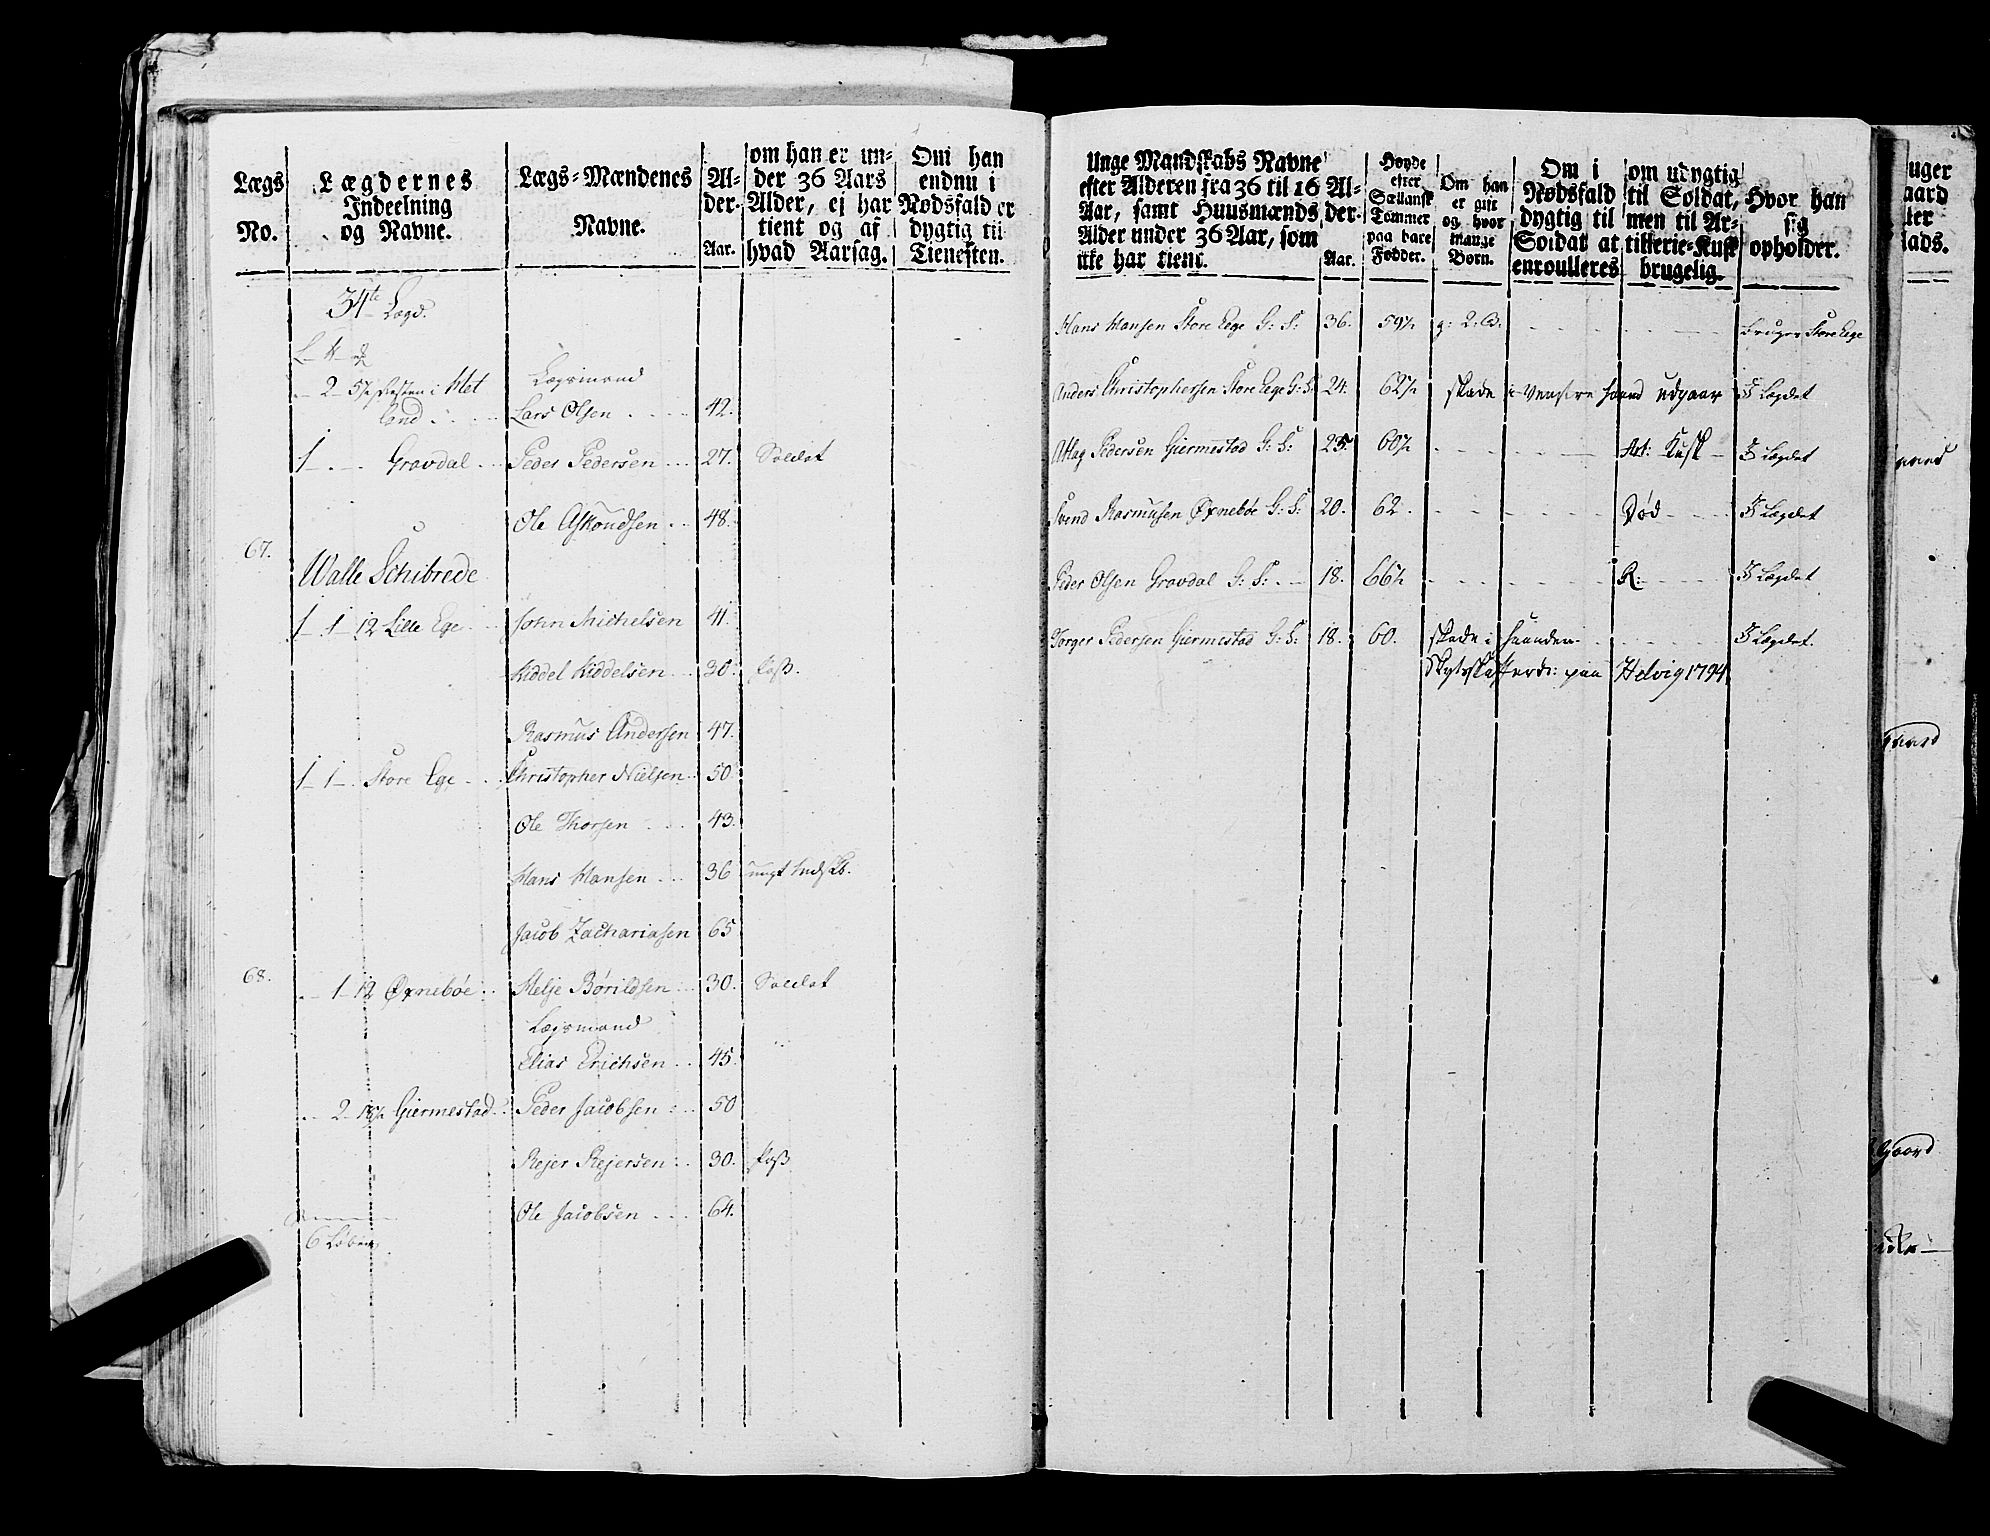 Lægs
No.
Lægdernes
Indeelning
og Navne.
Lægs-Mændenes
Navne.
Al-
der.
Aar.
om han er un-
der 36 Aars
Alder, ej har
tient og af
hvad Aarsag.
Om han
endnu i
Nødsfald er
dygtig til
Tienesten.
34te Lægd.
2 i Met
land
Lægsmand
Lars Olsen 42.
1 Gravdal Peder Pedersen 27. Soldat
Ole Asköudsen 48.
67.
Walle Schibrede
1 1 12 Lille Ege John Michelsen 41.
Kiddel Kiddelsen 30.
Rasmus Andersen 47.
1 1 Store Ege Christopher Nielsen 50
Ole Thorsen 43.
Hans Hansen 36
Jacob Zachariasen 65
68. 1 12 Øxnebøe Helje Börildsen 30. Soldat
Lægsmand
Elias Erichsen 45.
2 Giermestad Peder Jacobsen 50
Rejer Rejersen 30.
Ole Jacobsen 64.
6 Løber
Unge Mandskabs Navne
efter Alderen fra 36 til 16
Aar, samt Huusmænds
Alder under 36 Aar, som
ikke har tient.
Al-
der.
Aar.
Høyde
efter
Sællansk
Tommer
paa bare
Fødder.
Om han
er gift
og hvor
mange
Børn.
Om i
Nødsfald
dygtig til
Soldat at
enroulleres
om udygtig
til Soldat,
men til Ar-
tillerie-Kusk
brugelig.
Hvor han
sig
opholder.
Hans Hansen Store Ege G: S: 36. 59½ g: 2: B. bruger Store Ege
Anders Christophersen Store Ege G: S: 24. 62½ skade i Venstre haand udgaar I Lægdet
Aslag Pedersen Giermestad G: S: 25. 60½ Art: Kusk I Lægdet
Svend Rasmusen Øxnebøe G: S: 20. 62 Død I Lægdet
Peder Olsen Gravdal G: S: 18. 66½ R: I Lægdet
Torger Pedersen Giermestad G: S: 18. 60. skade i haanden I Lægdet.
paa Helvig 1794
uger
aard
ler
lads.